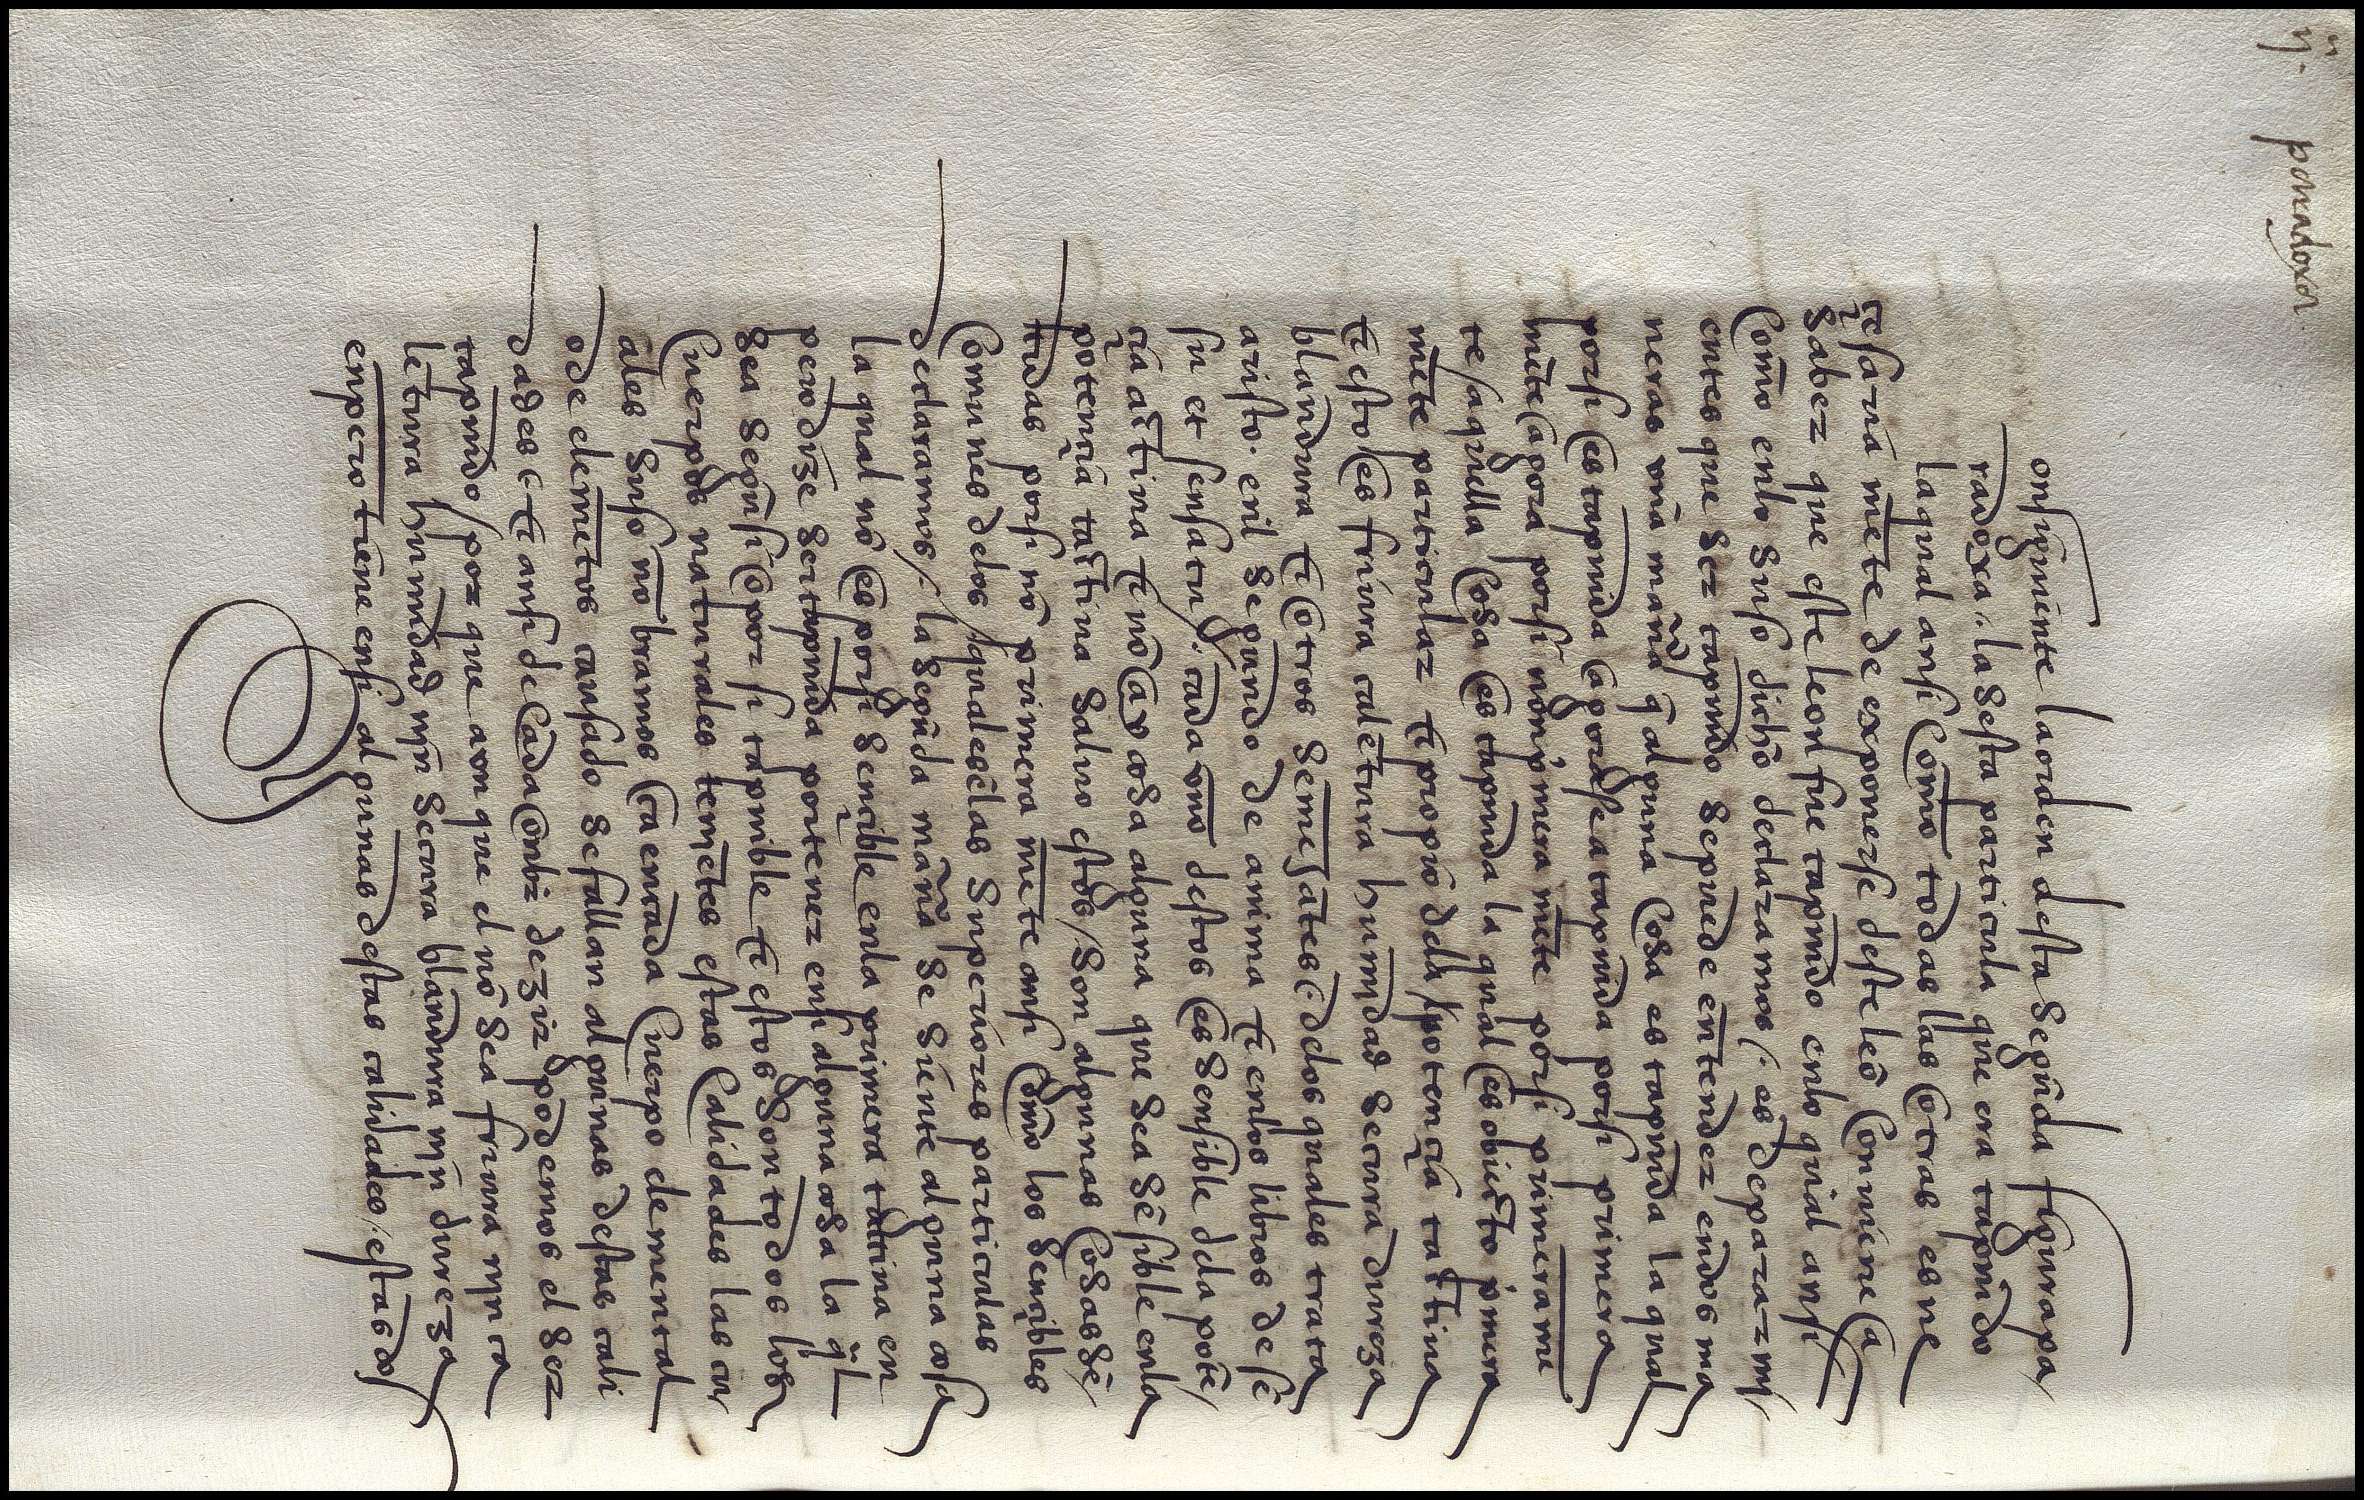 ij. paradoxa.
onsiguiente la orden desta segūda figura pa/
radoxa /. la sesta particula que era tapiādo
la qual ansi Como todas las otras es ne
çesaria mēte de exponerse deste leō Conuiene a
saber que este leon fue tapiādo enlo qual ansi
Como enlo suso dicho declaramos /. es de parar mj/
entes que ser tapiādo se puede entender en dos ma
neras vna mañā q̄ alguna cosa es tapiada la qual
por si es tapiada agora sea tapiada por si primera
mēte agora por si nō pⁱmera mēte por si primerame
te / aquella cosa es tapiada la qual es obiecto pⁱmera
mēte particular τ propio della / potençia tactiua
τ esto es friura calētura humjdad secura dureza
blandura τ otros semejātes /. delos quales trata
aristo. enl segundo de anima τ enlos libros de sē
su et sensatu /. cada vno destos es sensible dela potē/
çia actiua τ nō ay cosa alguna que sea sēsible enla
potençia tactiua saluo estos / son algunas cosas sē/
tidas por si nō primera mēte ansi como los sençibles
Comunes delos / quales elas superiores particulas
declaramos /. la segūda mañā se siente alguna cosa
la qual nō es por si sençible enla primera tactiua en
pero dize ser tapiada por tener ensi alguna cosa la q̄l
sea segū si o por si tapiible τ estos son todos los
Cuerpos naturales temētes estas Calidades las cu
ales suso nō bramos Ca en cada Cuerpo elemental
o de elemētos causado se fallan algunas destas cali
dades τ ansi de Cada Conbiz dezir podemos el ser
tapiado / por que aun que el nō sea friura nj ca
letura humidad nj̄ secura blandura nj̄ dureza
enpero tiene ensi algunas destas calidades /. estas dos